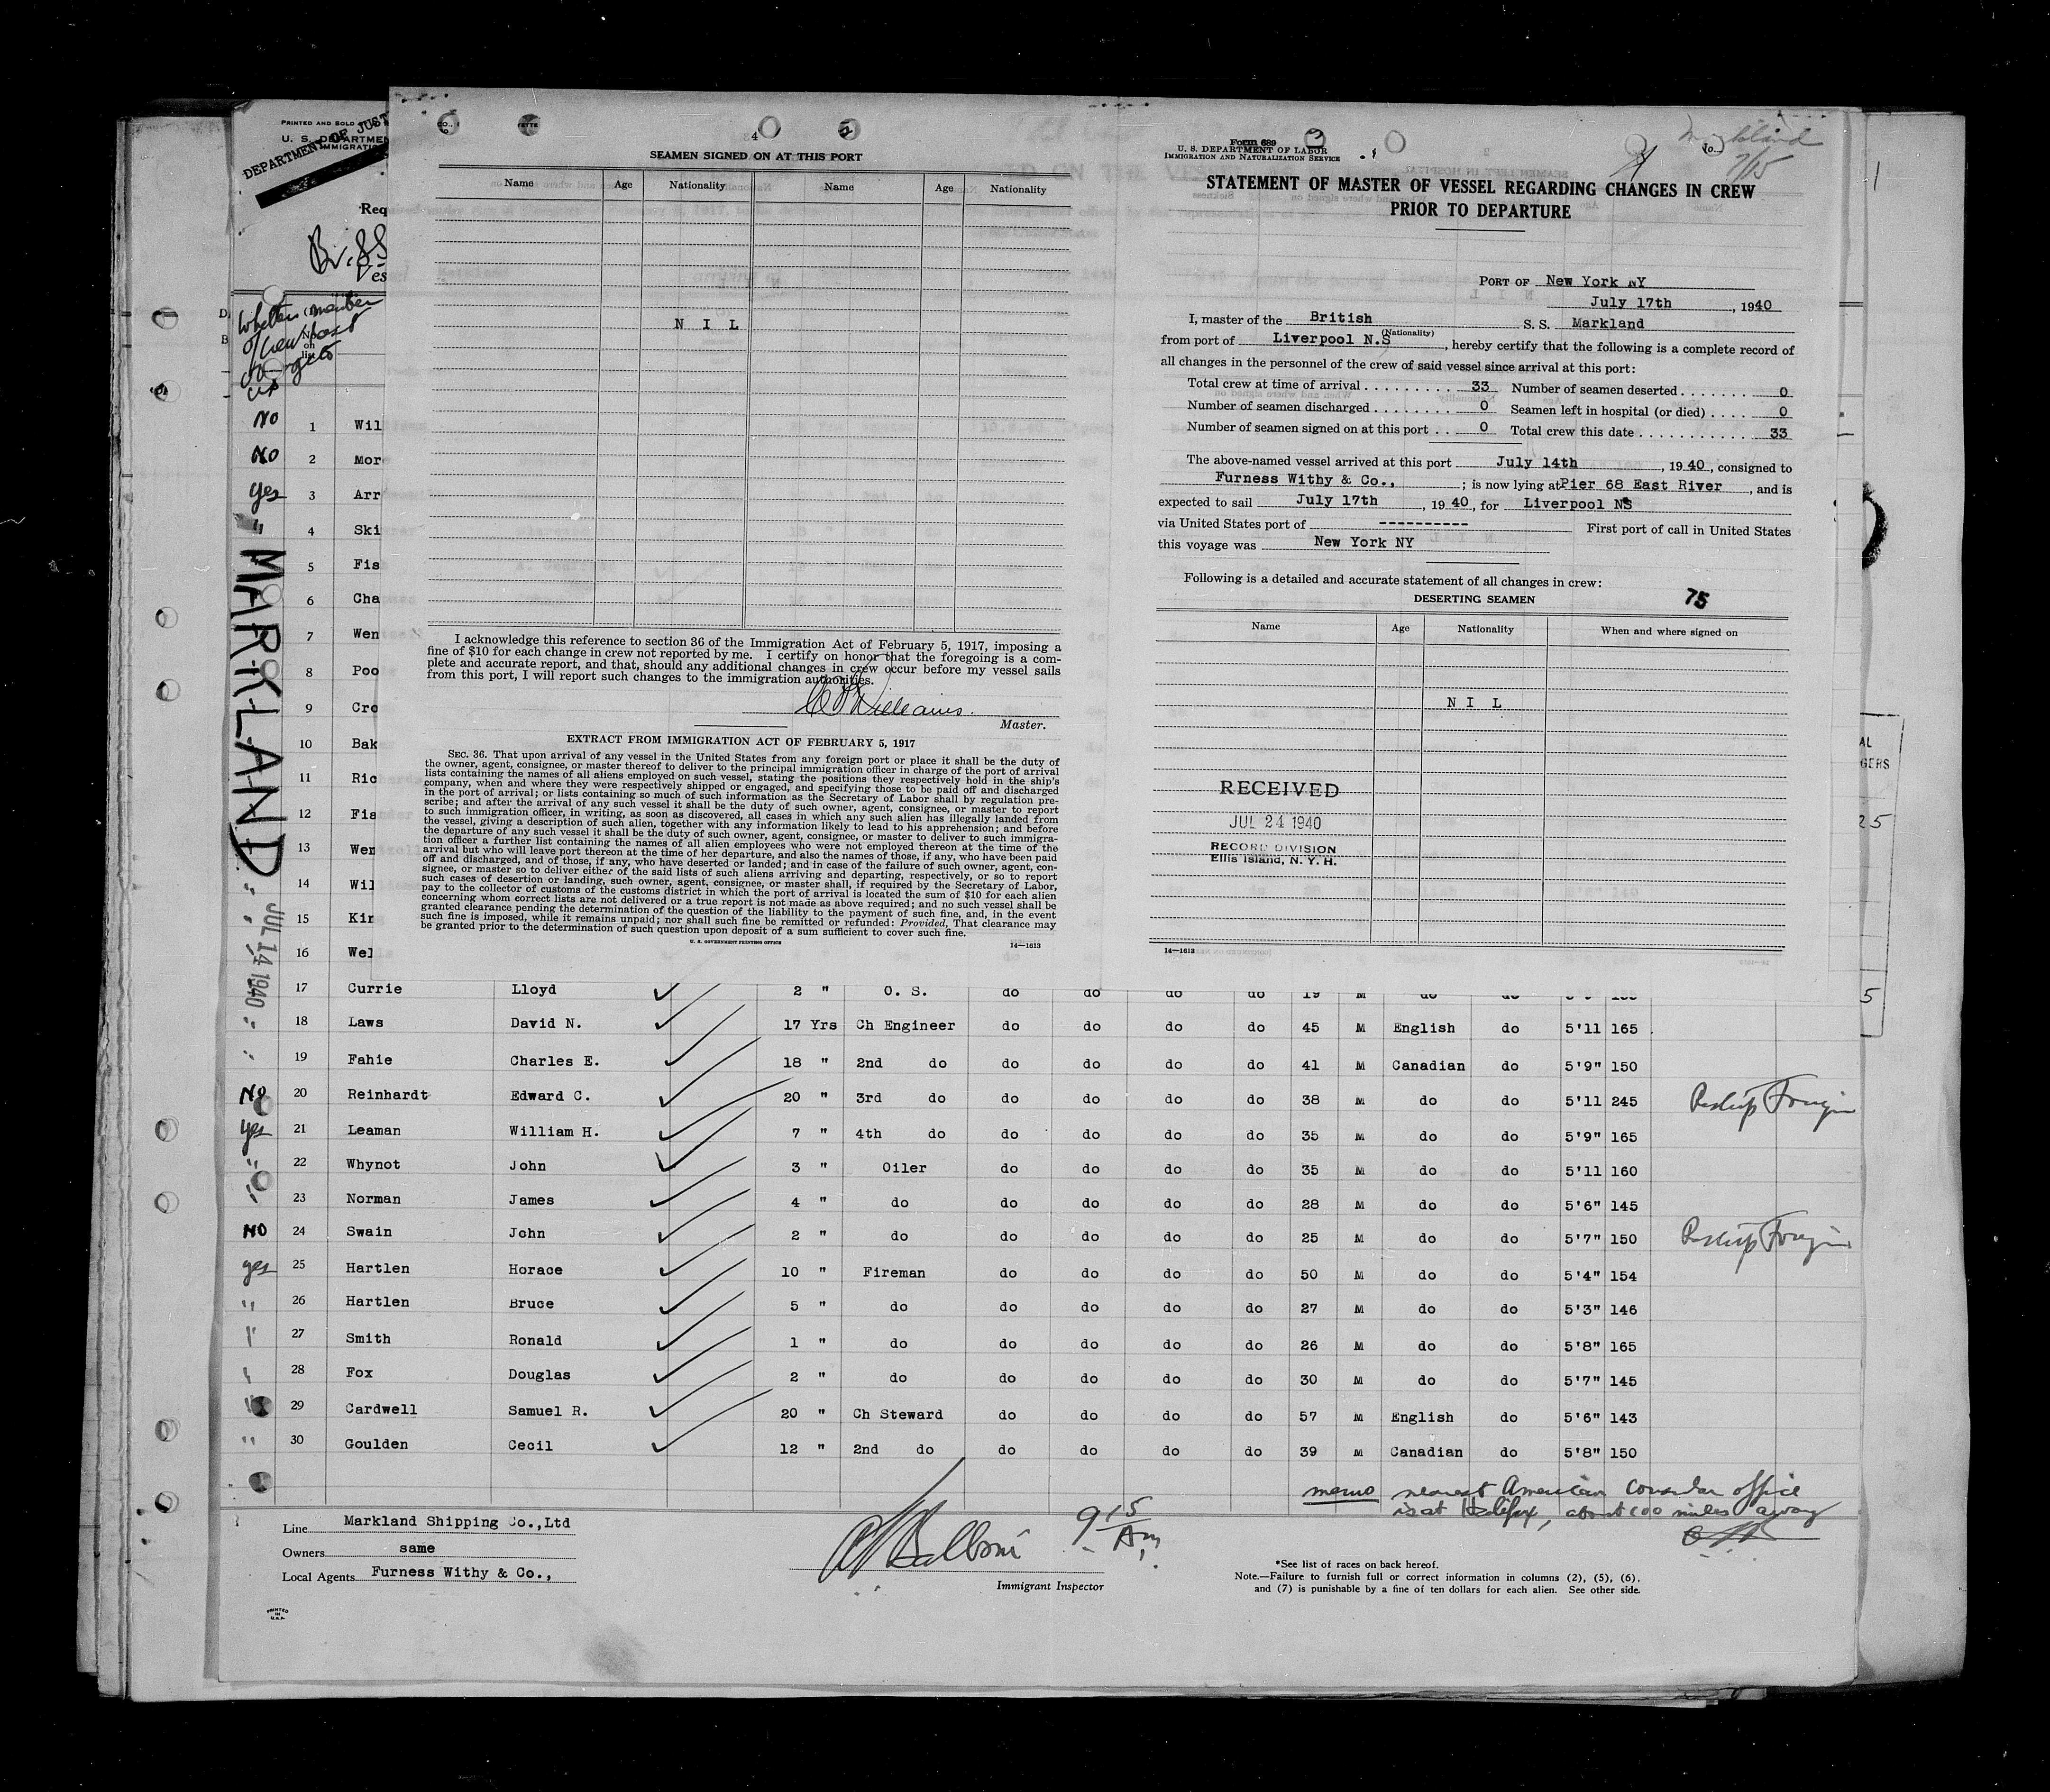 PRINTED AND SOLD
U. S. DEPARTMEN
IMMIGRATI
DEPARTMENT OF JUST
Req
Br. SS
Ves
Whether member
of crew last
No
on
list
trip
MARKLAND
JUL 14 1940
No 1 Wil
No 2 Mor
yes 3 Arr
" 4 Ski
5 Fis
6 Cha
7 Wen
8 Poo
9 Cro
10 Bak
11 Ric
12 Fis
13 Wen
14 Wil
15 Kin
16 Wel
4
SEAMEN SIGNED ON AT THIS PORT
Name Age Nationality Name Age Nationality
N I L
I acknowledge this reference to section 36 of the Immigration Act of February 5, 1917, imposing a
fine of $10 for each change in crew not reported by me. I certify on honor that the foregoing is a com-
plete and accurate report, and that, should any additional changes in crew occur before my vessel sails
from this port, I will report such changes to the immigration authorities.
Williams
Master.
EXTRACT FROM IMMIGRATION ACT OF FEBRUARY 5, 1917
SEC. 36. That upon arrival of any vessel in the United States from any foreign port or place it shall be the duty of
the owner, agent, consignee, or master thereof to deliver to the principal immigration officer in charge of the port of arrival
lists containing the names of all aliens employed on such vessel, stating the positions they respectively hold in the ship's
company, when and where they were respectively shipped or engaged, and specifying those to be paid off and discharged
in the port of arrival; or lists containing so much of such information as the Secretary of Labor shall by regulation pre-
scribe; and after the arrival of any such vessel it shall be the duty of such owner, agent, consignee, or master to report
to such immigration officer, in writing, as soon as discovered, all cases in which any such alien has illegally landed from
the vessel, giving a description of such alien, together with any information likely to lead to his apprehension; and before
the departure of any such vessel it shall be the duty of such owner, agent, consignee, or master to deliver to such immigra-
tion officer a further list containing the names of all alien employees who were not employed thereon at the time of the
arrival but who will leave port thereon at the time of her departure, and also the names of those, if any, who have been paid
off and discharged, and of those, if any, who have deserted or landed; and in case of the failure of such owner, agent, con-
signee, or master so to deliver either of the said lists of such aliens arriving and departing, respectively, or so to report
such cases of desertion or landing, such owner, agent, consignee, or master shall, if required by the Secretary of Labor,
pay to the collector of customs of the customs district in which the port of arrival is located the sum of $10 for each alien
concerning whom correct lists are not delivered or a true report is not made as above required; and no such vessel shall be
granted clearance pending the determination of the question of the liability to the payment of such fine, and, in the event
such fine is imposed, while it remains unpaid; nor shall such fine be remitted or refunded: Provided, That clearance may
be granted prior to the determination of such question upon deposit of a sum sufficient to cover such fine.
U. S. GOVERNMENT PRINTING OFFICE 14—1613
Form 689
U. S. DEPARTMENT OF LABOR
IMMIGRATION AND NATURALIZATION SERVICE
Markland
7/15
STATEMENT OF MASTER OF VESSEL REGARDING CHANGES IN CREW
PRIOR TO DEPARTURE
PORT OF New York NY
July 17th, 1940
I, master of the British S. S. Markland
(Nationality)
from port of Liverpool N.S, hereby certify that the following is a complete record of
all changes in the personnel of the crew of said vessel since arrival at this port:
Total crew at time of arrival . . . . . . . . . 33 Number of seamen deserted . . . . . . . 0
Number of seamen discharged . . . . . . . 0 Seamen left in hospital (or died) . . . . 0
Number of seamen signed on at this port . . 0 Total crew this date . . . . . . . . . . . 33
The above-named vessel arrived at this port July 14th, 1940, consigned to
Furness Withy & Co., ; is now lying at Pier 68 East River, and is
expected to sail July 17th, 1940, for Liverpool NS
via United States port of ---------- First port of call in United States
this voyage was New York NY
Following is a detailed and accurate statement of all changes in crew:
DESERTING SEAMEN
75
Name Age Nationality When and where signed on
N I L
RECEIVED
JUL 24 1940
RECORD DIVISION
Ellis Island, N. Y. H.
14—1613
1
AL
GERS
25
5
17 Currie Lloyd 2 " O. S. do do do do 19 M do do
" 18 Laws David N. 17 Yrs Ch Engineer do do do do 45 M English do 5'11 165
" 19 Fahie Charles E. 18 " 2nd do do do do do 41 M Canadian do 5'9" 150
No 20 Reinhardt Edward C. 20 " 3rd do do do do do 38 M do do 5'11 245 Reship Foreign
yes 21 Leaman William H. 7 " 4th do do do do do 35 M do do 5'9" 165
" 22 Whynot John 3 " Oiler do do do do 35 M do do 5'11 160
" 23 Norman James 4 " do do do do do 28 M do do 5'6" 145
No 24 Swain John 2 " do do do do do 25 M do do 5'7" 150 Reship Foreign
yes 25 Hartlen Horace 10 " Fireman do do do do 50 M do do 5'4" 154
" 26 Hartlen Bruce 5 " do do do do do 27 M do do 5'3" 146
" 27 Smith Ronald 1 " do do do do do 26 M do do 5'8" 165
" 28 Fox Douglas 2 " do do do do do 30 M do do 5'7" 145
" 29 Cardwell Samuel R. 20 " Ch Steward do do do do 57 M English do 5'6" 143
" 30 Goulden Cecil 12 " 2nd do do do do do 39 M Canadian do 5'8" 150
memo nearest American Consular office
is at Halifax, about 100 miles away
Line Markland Shipping Co.,Ltd
Owners same
Local Agents Furness Withy & Co.,
Balboni 9 15 Am
Immigrant Inspector
*See list of races on back hereof.
Note.—Failure to furnish full or correct information in columns (2), (5), (6),
and (7) is punishable by a fine of ten dollars for each alien. See other side.
PRINTED
IN
U.S.A.